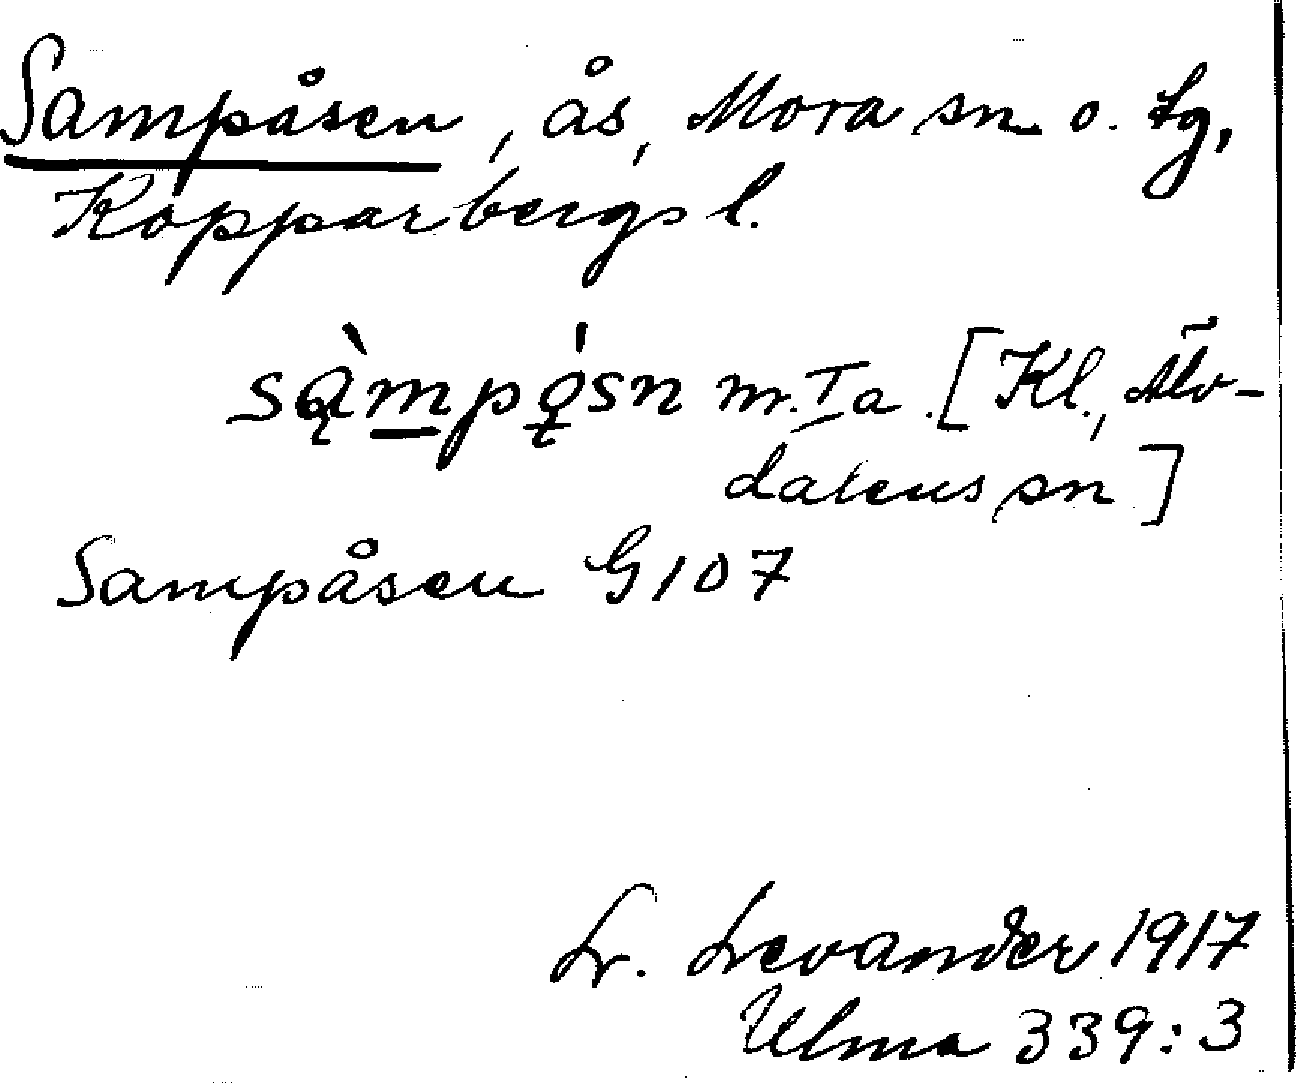 Sampåsen, ås, Mora sn o. tg,
Kopparbergs l.
są̀mpǫ́sn m. I a [Kl., Älv-
dalens sn]
Sampåsen G 107
L. Levander 1917
Ulma 339:3